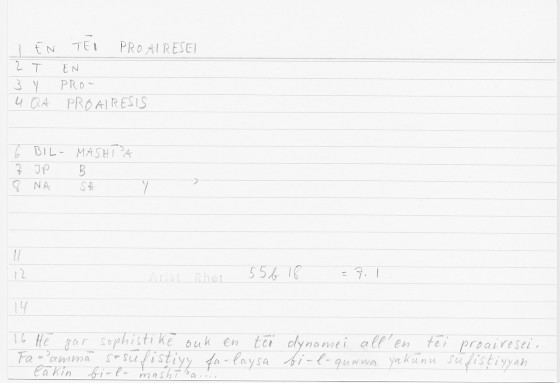 1 ĒN TĒI PROAIRESEI
2 T EN
3 Y PRO-
4 QA PROAIRESIS
6 BIL- MASHĪʾA
7 JP B
8 NA SA Y ʾ
11
12 Arist Rhet 55b 18 = 7.1
14
16 Hē gar sophistikē ouk en tēi dynamei all'en tēi proairesei.
Fa-ʾammā s-sūfisṭiyy fa-laysa bi-l-quwwa yakūnu sūfisṭiyyan
lākin bi-l- mashīʾa....